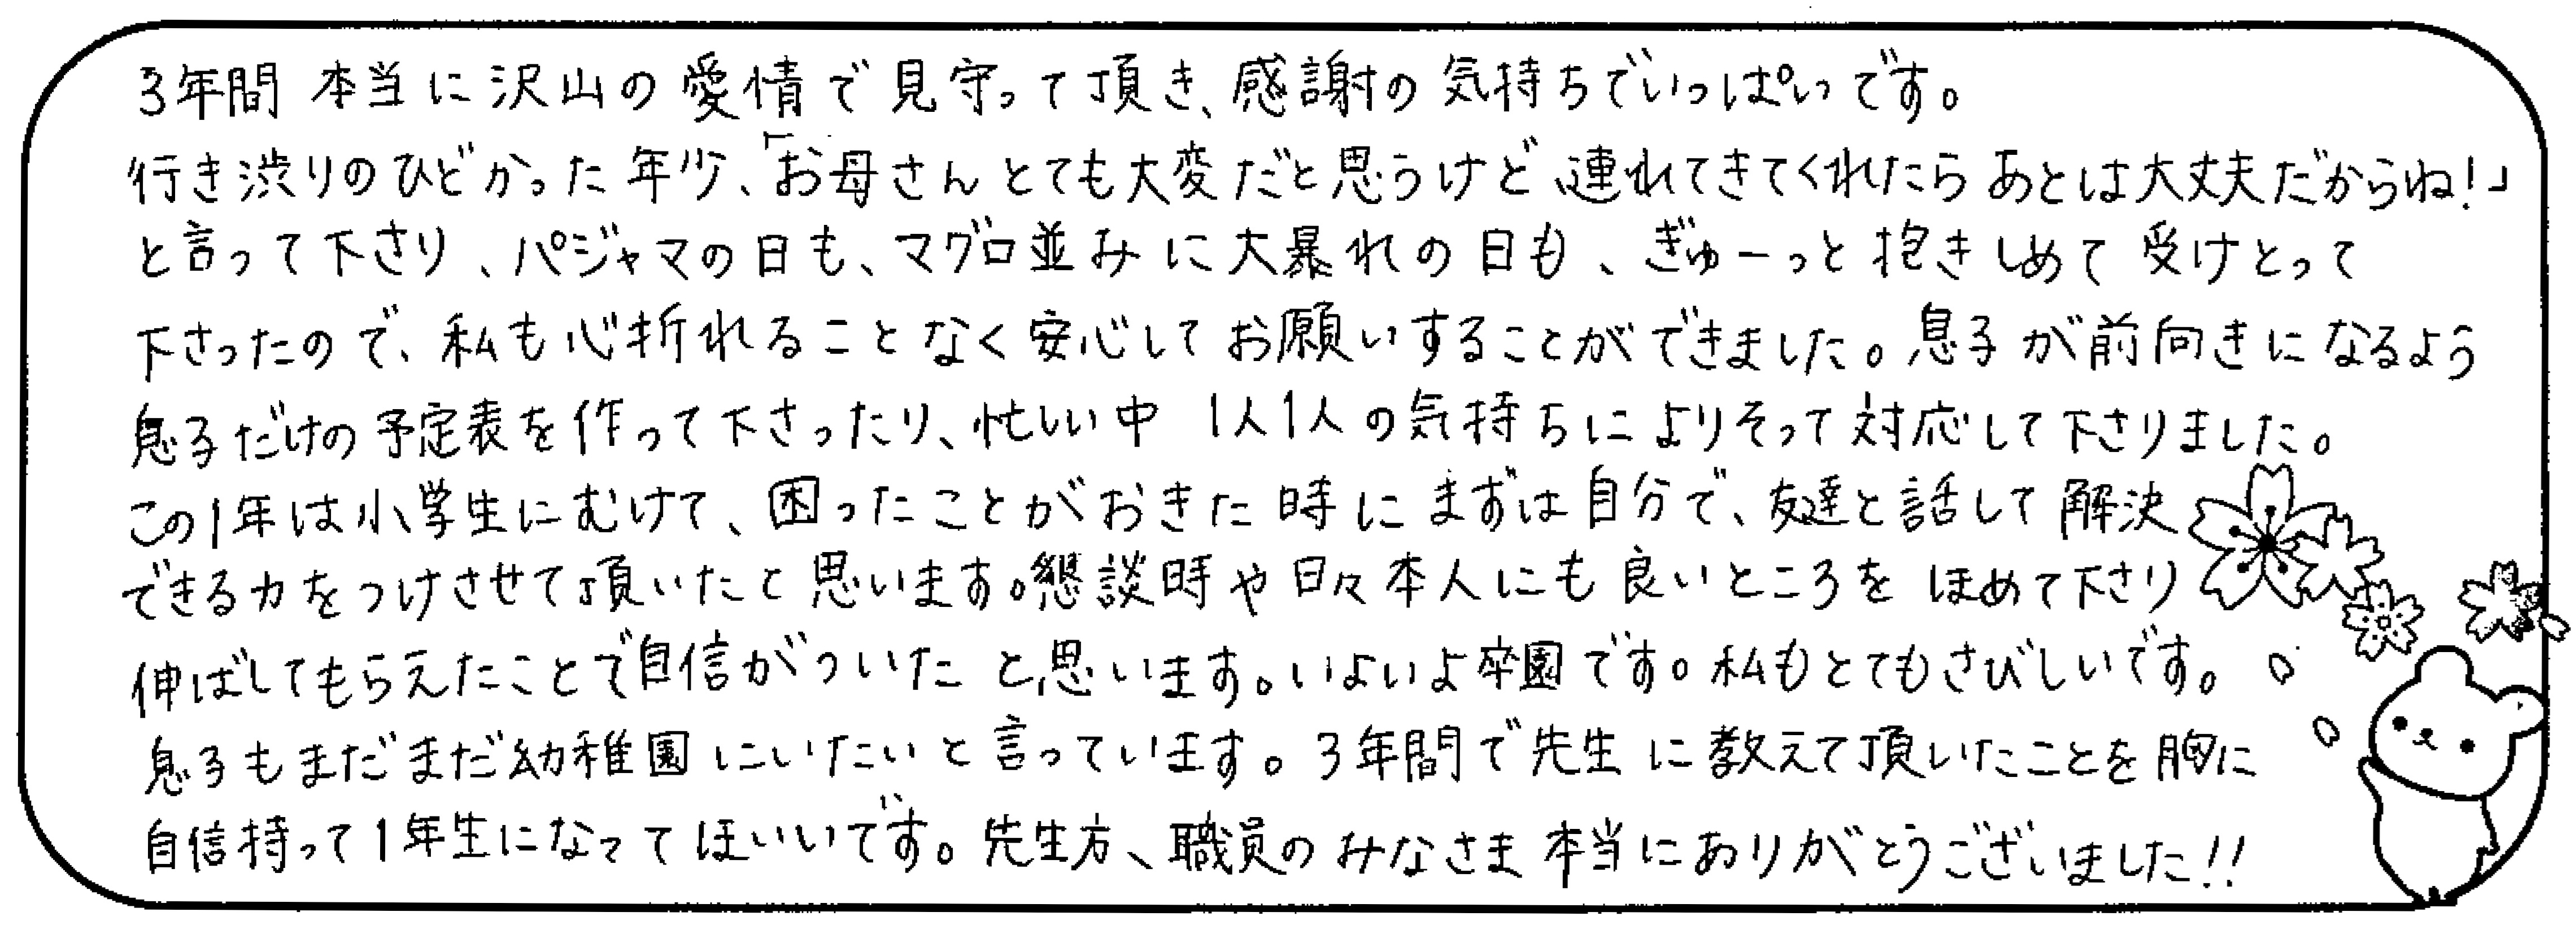 3年間 本当に沢山の愛情で見守って頂き、感謝の気持ちでいっぱいです。
行き渋りのひどかった年少、「お母さんとても大変だと思うけど、連れてきてくれたらあとは大丈夫だからね!」
と言って下さり、パジャマの日も、マグロ並みに大暴れの日も、ぎゅーっと抱きしめて受けとって
下さったので、私も心折れることなく安心してお願いすることができました。息子が前向きになるよう
息子だけの予定表を作って下さったり、忙しい中 1人1人の気持ちによりそって対応して下さりました。
この1年は小学生にむけて、困ったことがおきた時にまずは自分で、友達と話して解決
できる力をつけさせて頂いたと思います。懇談時や日々本人にも良いところをほめて下さり
伸ばしてもらえたことで自信がついたと思います。いよいよ卒園です。私もとてもさびしいです。
息子もまだまだ幼稚園にいたいと言っています。3年間で先生に教えて頂いたことを胸に
自信持って1年生になってほしいです。先生方、職員のみなさま本当にありがとうございました!!